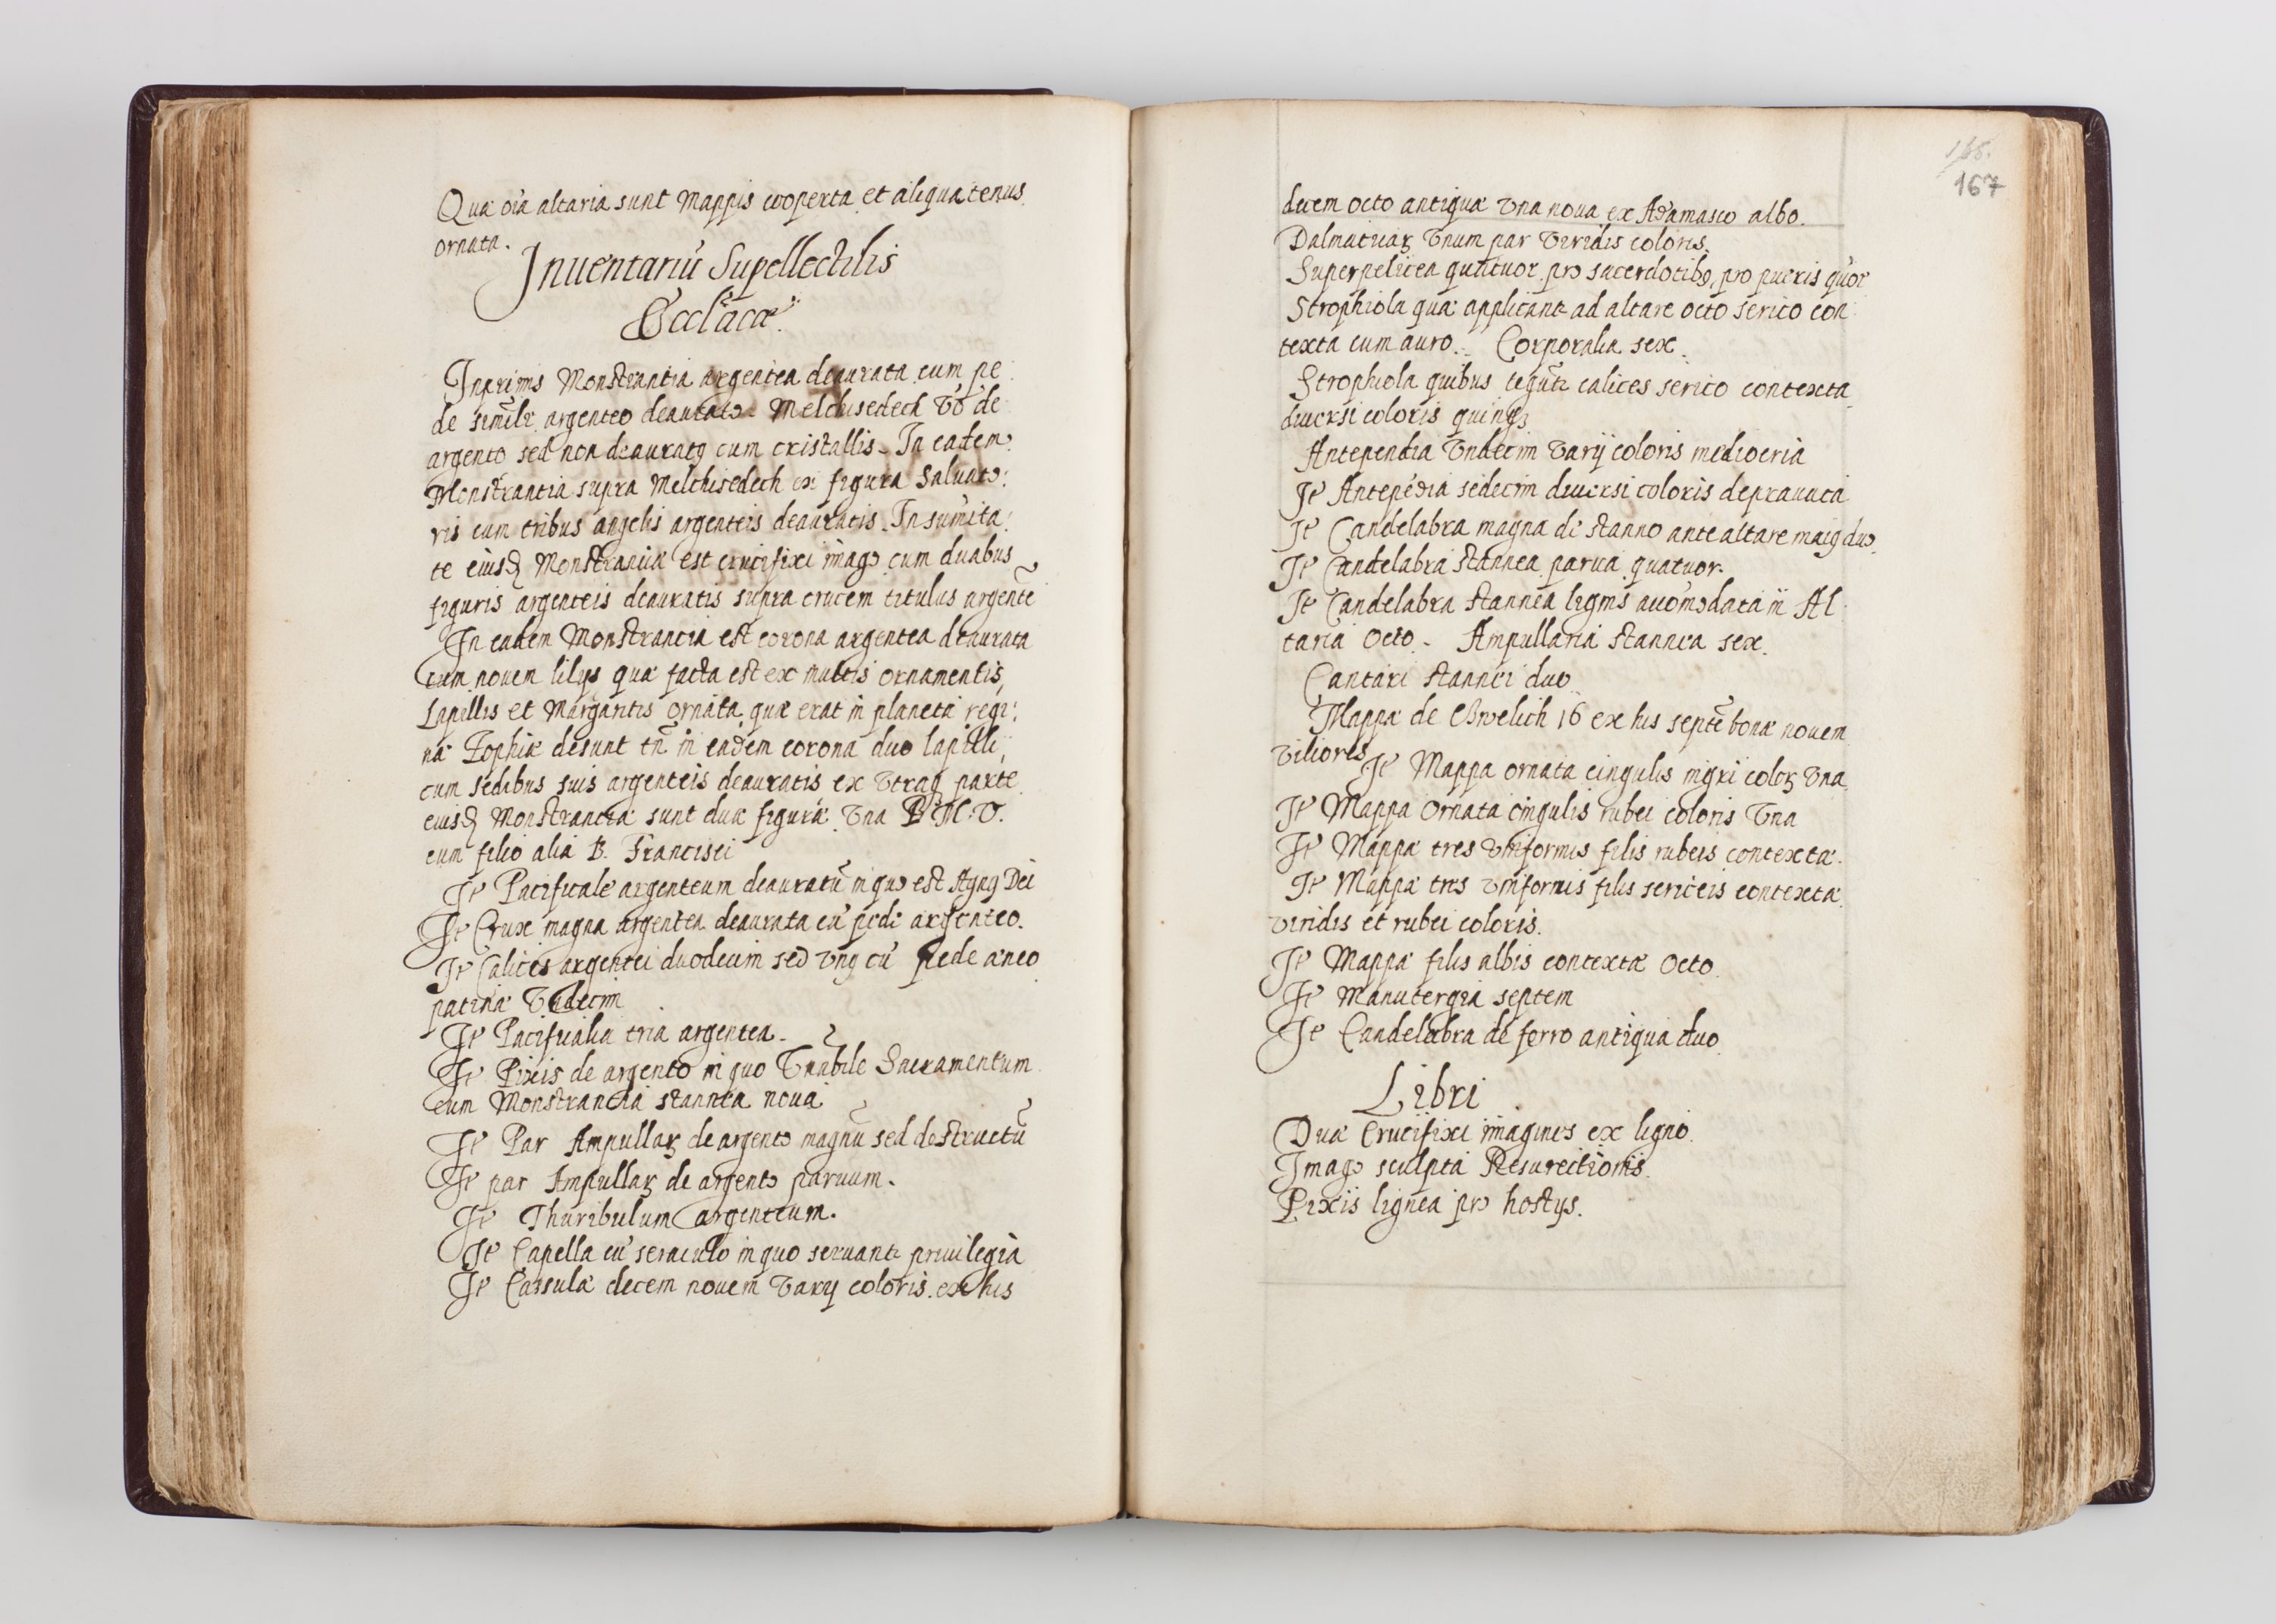 Quæ oĩa altaria sunt Mappis cooperta et aliquatenus
ornata.
Inuentariũ Supellectilis
Ecclãcæ
Inprimis Monstrantia argentea deaurata cum pe
de simili argenteo deaurato. Melchisedech võ de
argento sed non deaurato cum cristallis. In eadem
Monstrantia supra Melchisedech ex figura Saluato:
ris cum tribus angelis argenteis deauratis. In sum̃ita:
te eiusdꝫ Monstrantiæ est crucifixi imago cum duabus
figuris argenteis deauratis supra crucem titulus argentẽ
In eadem Monstrantia est corona argentea deaurata
cum nouem lilijs quæ facta est ex multis ornamentis,
Lapillis et Margaritis ornata quæ erat in planeta regi:
næ Zophiæ desunt tñ in eadem corona duo lapilli,
cum sedibus suis argenteis deauratis ex vtraqꝫ parte
eiusdꝫ Monstrantiæ sunt duæ figuræ vna B M. V.
cum filio alia B. Francisci
It Pacificale argenteum deauratũ in quo est Agnꝰ Dei
It Crux magna argentea deaurata cũ pede argenteo.
It Calices argentei duodecim sed vnꝰ cũ pede æneo
patinæ vndecim
It Pacificalia tria argentea.
It Pixis de argento in quo Vnãbile Sacramentum
cum Monstrantia stannea noua
It Par Ampullaꝝ de argento magnũ sed destructũ
It par Ampullaꝝ de argento paruum.
It Thuribulum argenteum.
It Capella cũ seraculo in quo seruantr priuilegia
It Casulæ decem nouem varij coloris. ex his
165.
167
decem octo antiquæ vna noua ex Adamasco albo.
Dalmaticaꝝ vnum par viridis coloris.
Superpelicea quatuor pro sacerdotibꝰ, pro pueris quõr
Strophiola quæ applicantr ad altare octo serico con
texta cum auro. Corporalia sex.
Strophiola quibus tegũtr calices serico contexta
diuersi coloris quinqꝫ
Antependia vndecim varij coloris mediocria
It Antepẽdia sedecim diuersi coloris deprauata
It Candelabra magna de stanno ante altare maiꝰ duo
It Candelabra stannea parua quatuor.
It Candelabra stannea lignis accõmodata in Al
taria octo. Ampullaria stannea sex.
Cantari stannei duo
Mappæ de Cwelich 16 ex his septẽ bonæ nouem
viliores
It Mappa ornata cingulis nigri coloꝝ vna
It Mappa ornata cingulis rubei coloris vna
It Mappæ tres vniformis filis rubeis contextæ.
It Mappæ tres vniformis filis sericeis contextæ
viridis et rubei coloris.
It Mappæ filis albis contextæ octo
It Manutergia septem
It Candelabra de ferro antiqua duo
Libri
Duæ Crucifixi imagines ex ligno
Imago sculpta Resurectionis
Pixis lignea pro hostijs.